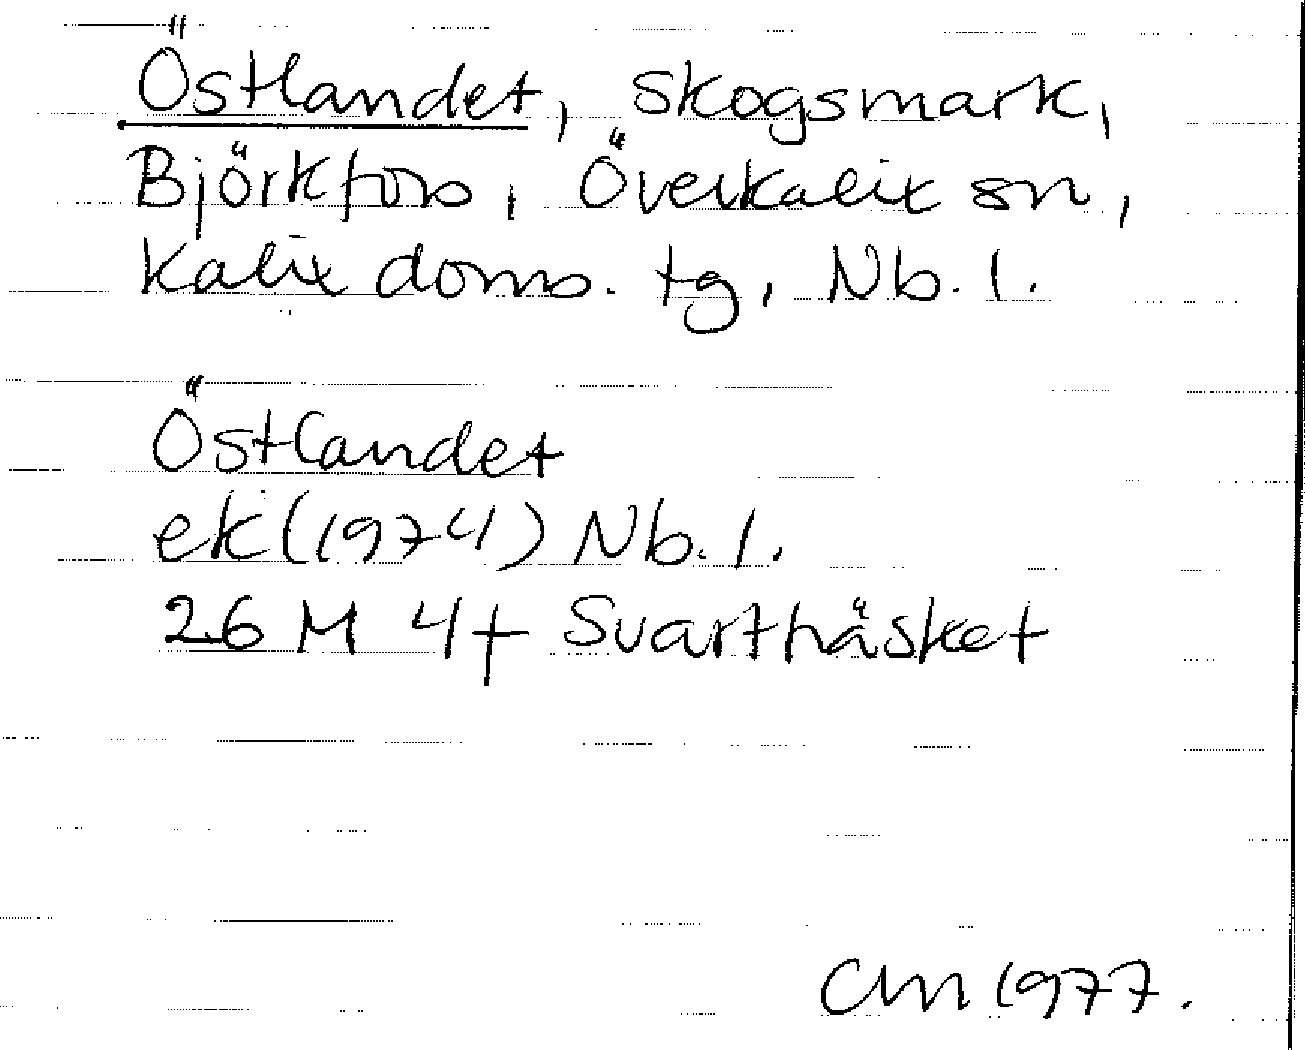 Östlandet, skogsmark,
Björkfors, Överkalix sn,
Kalix doms. tg, Nb. l.
Östlandet
ek (1974) Nb. l.
26 M 4f Svartträsket
CM 1977.